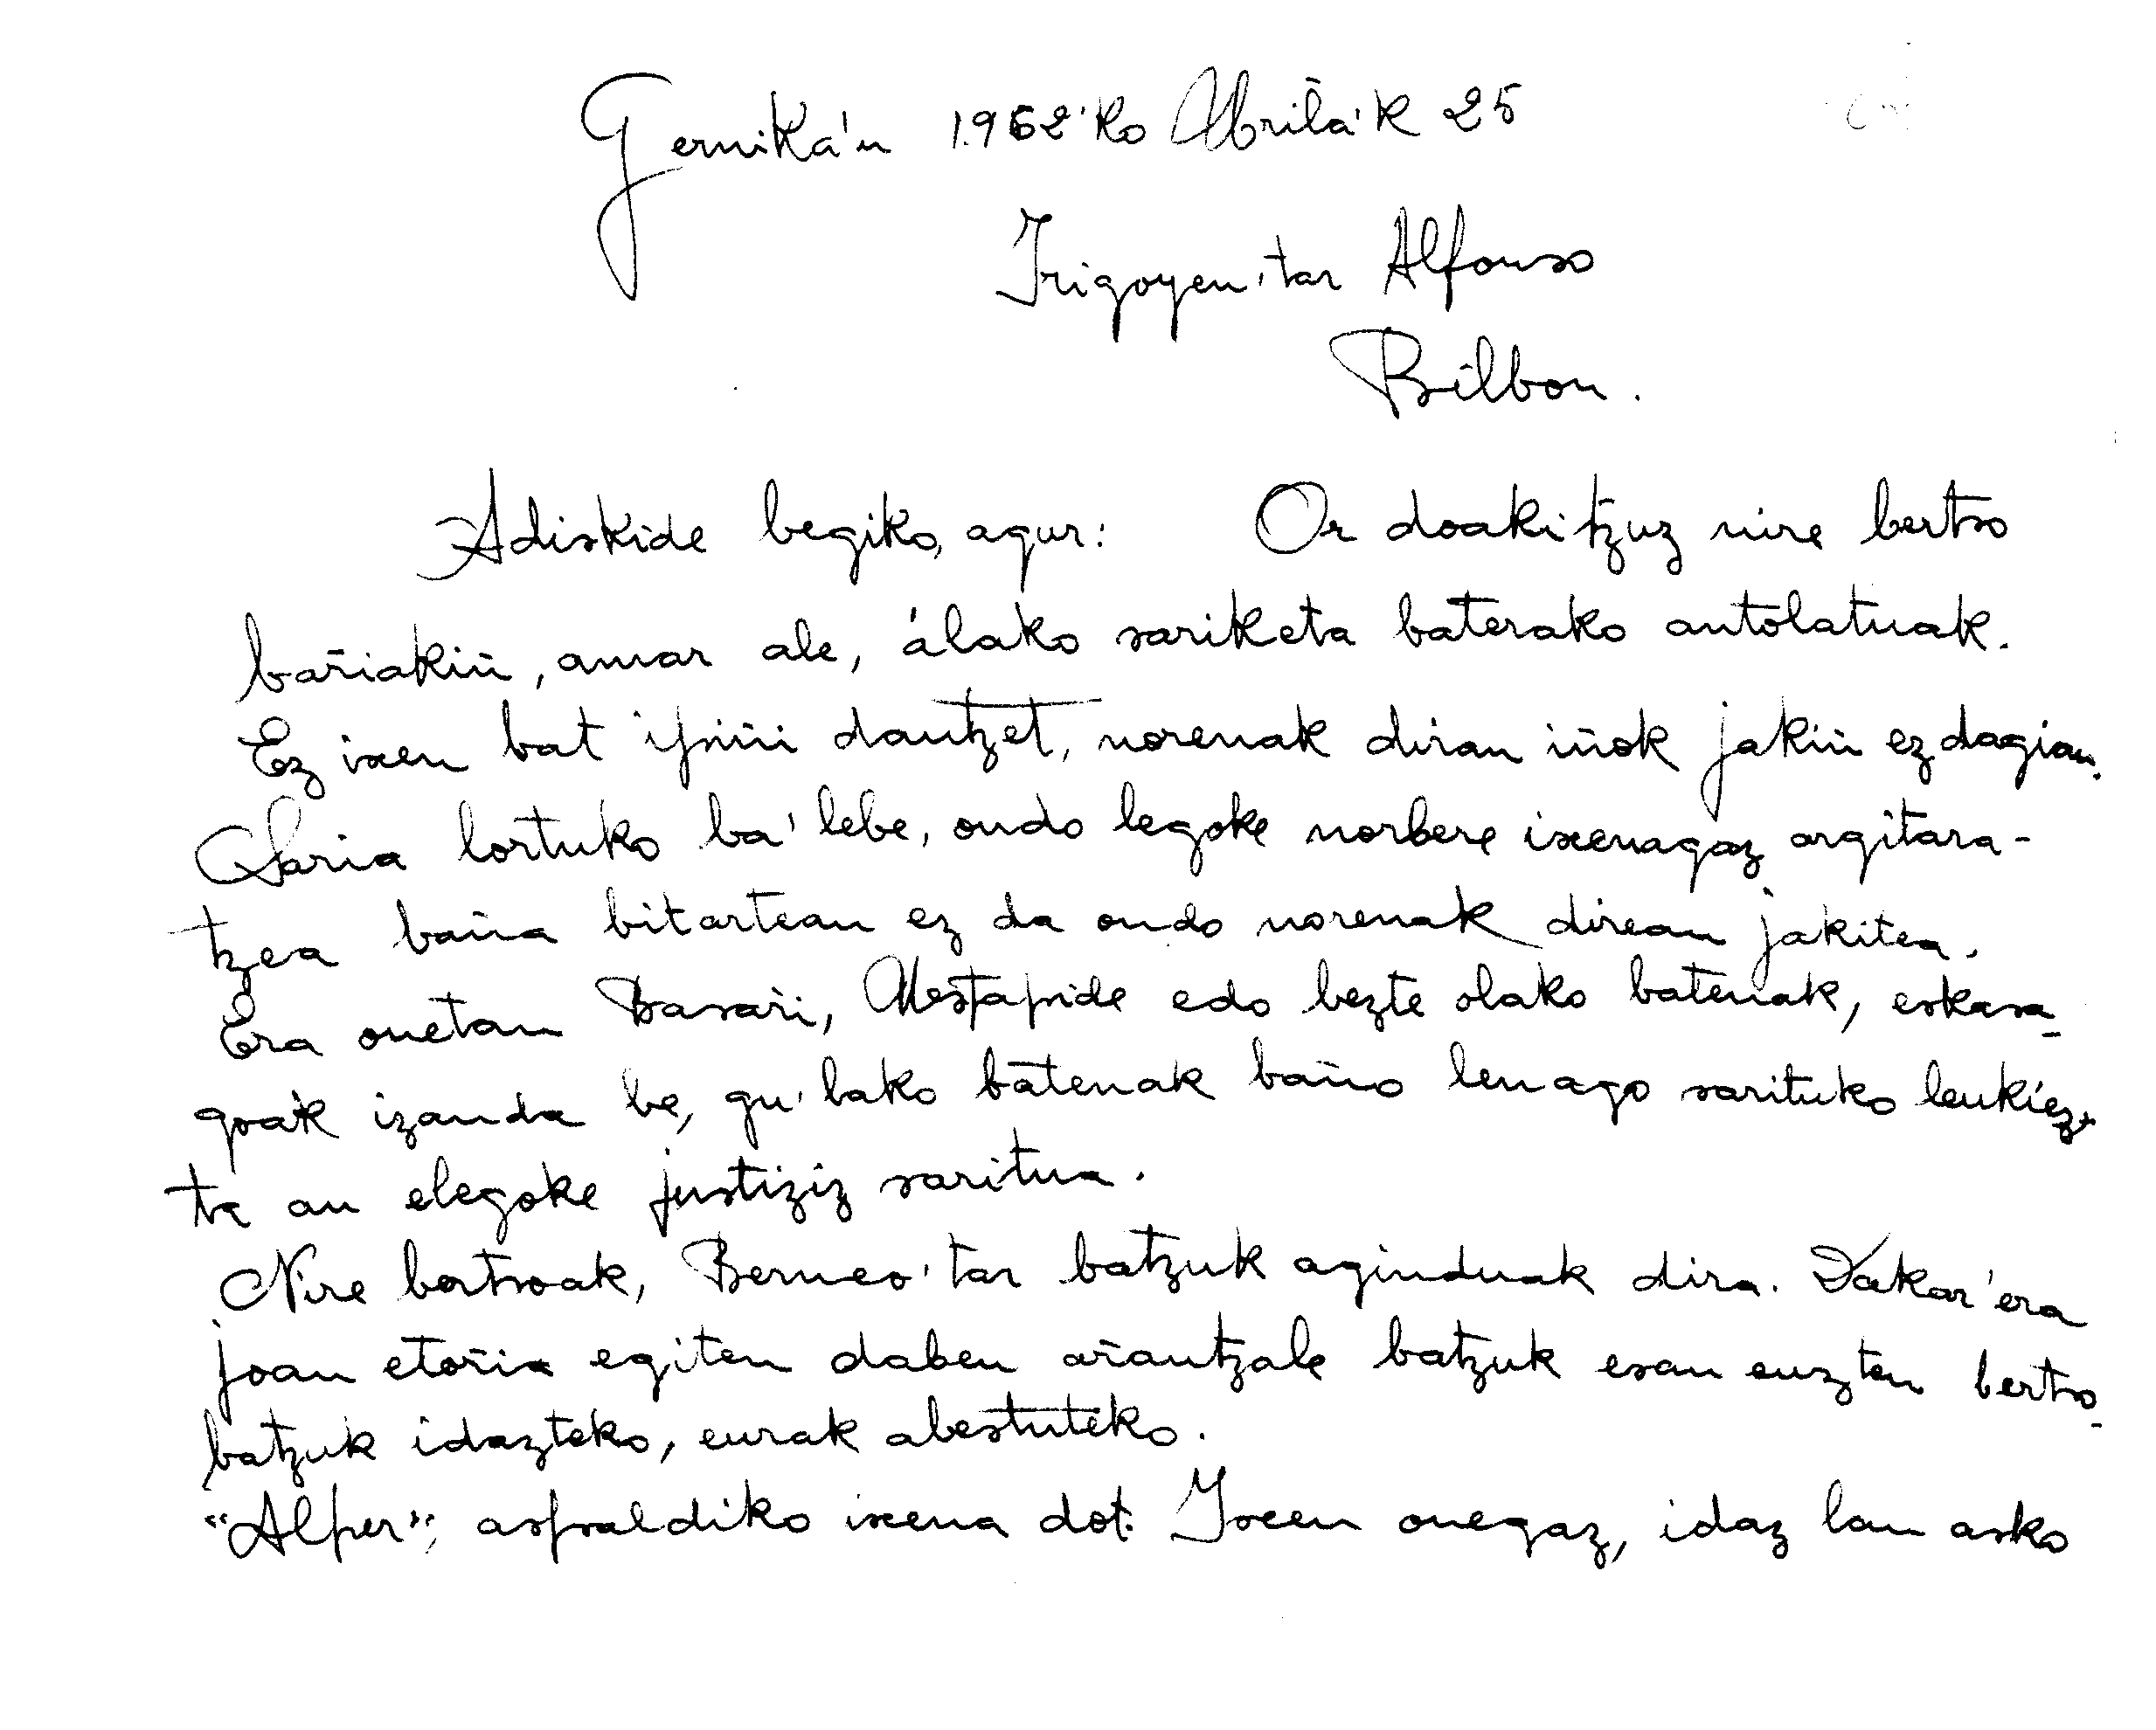 Gernika'n 1.962'ko Abrila'k 25
Irigoyen'tar Alfonso
Bilbon.
Adiskide begiko, agur: Or doakitzuz nire bertso
bar̃iakiñ, amar ale, álako sariketa baterako antolatuak.
Ez ixen bat ipiñi dautzet, norenak diran iñok jakiñ ez dagian.
Saria lortuko ba'lebe, ondo legoke norbere ixenagaz argitara-
tzea baña bitartean ez da ondo norenak direan jakitea.
Era onetan Basar̃i, Uztapide edo bezte olako batenak, eskasa-
goak izanda be, gu'lako batenak baño lenago sarituko leukiez
ta au elegoke justiziz saritua.
Nire bertsoak, Bermeo'tar batzuk aginduak dira. Dakar'era
joan etor̃ia egiten daben ar̃antzale batzuk esan euzten bertso
batzuk idazteko, eurak abestuteko.
"Alper", aspaldiko ixena dot. Ixen onegaz, idaz lan asko